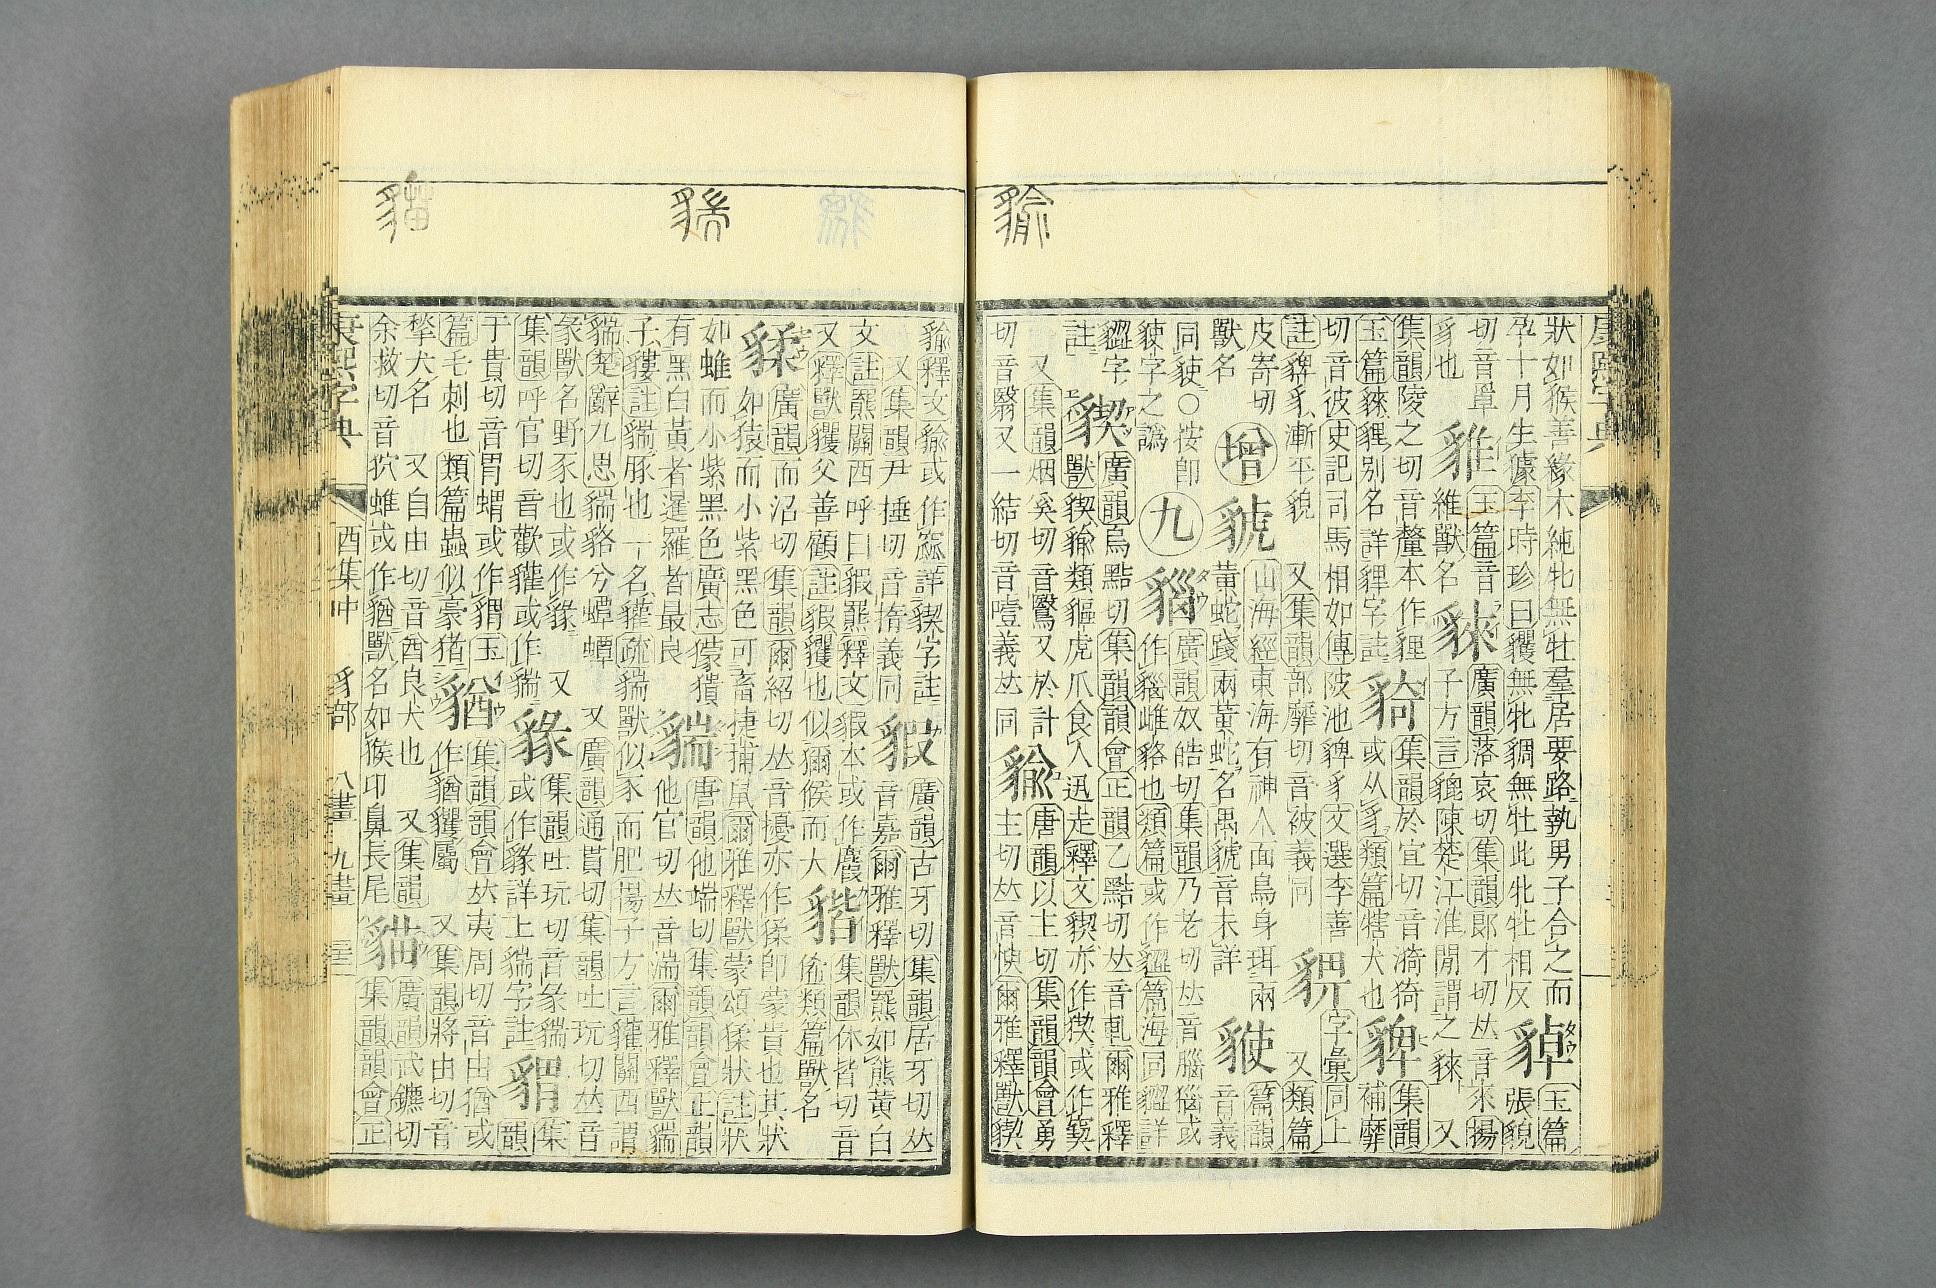 貐
狀如猴善緣木純牝無牡羣居要路執男子合之而
孕十月生據李時珍曰玃無牝無牡此牝牡相反
玉篇
張貌
切音罩
豸也
玉篇音
維獸名
廣韻落哀切集韻郞才切𠀤音來揚
子方言貔陳楚江淮閒謂之 又
集韻陵之切音釐本作貍
玉篇貍別名詳貍字註
集韻於宜切音漪猗
或从豸類篇犗犬也
貏
集韻
補靡
切音彼史記司馬相如傳陂池貏豸文選李善
註貏豸漸平貌 又集韻部靡切音被義同
字彙同上
又類篇
皮寄切
獸名
增
山海經東海有神人面鳥身珥兩
黃蛇踐兩黃蛇名禺虢音未詳
篇韻
音義
同○按卽
字之譌
九
廣韻奴皓切集韻乃老切𠀤音腦惱或
作雌貉也類篇或作篇海同詳
字
註
廣韻烏黠切集韻韻會正韻乙黠切𠀤音軋爾雅釋
獸貐類貙虎爪食人迅走釋文亦作猰或作窫
又集韻烟奚切音鷖又於計
切音翳又一結切音噎義𠀤同
貐
唐韻以主切集韻韻會勇
主切𠀤音㥚爾雅釋獸
貐釋文貐或作窳詳字註
又集韻尹捶切音撱義同
貑
廣韻古牙切集韻居牙切𠀤
音嘉爾雅釋獸羆如熊黃白
文註羆關西呼曰貑羆釋文貑本或作麚
又釋獸玃父善顧註貑玃也似獼猴而大
集韻休皆切音
類篇獸名
廣韻而沼切集韻爾紹切𠀤音擾亦作猱卽蒙貴也其狀
如猿而小紫黑色可畜捷捕鼠爾雅釋獸蒙頌猱狀註狀
如蜼而小紫黑色廣志獴𤡱
有黑白黃者暹羅者最良
貒
唐韻他端切集韻韻會正韻
他官切𠀤音湍爾雅釋獸貒
子貗註貒豚也一名貛疏貒獸似豕而肥揚子方言貛關西謂
貒楚辭九思貒貉兮蟫蟫 又廣韻通貫切集韻吐玩切𠀤音
彖獸名野豕也或作 又
集韻呼官切音歡貛或作貒
集韻吐玩切音彖貒
或作詳上貒字註
韻集
于貴切音胃蝟或作玉
篇毛刺也類篇蟲似豪豬
集韻韻會𠀤夷周切音由猶或
作猶玃屬 又集韻將由切音
揫犬名 又自由切音酋良犬也 又集韻
余救切音狖蜼或作猶獸名如猴卬鼻長尾
貓
廣韻武鑣切
集韻韻會正
康熙字典
酉集中 豸部 八畫 九畫